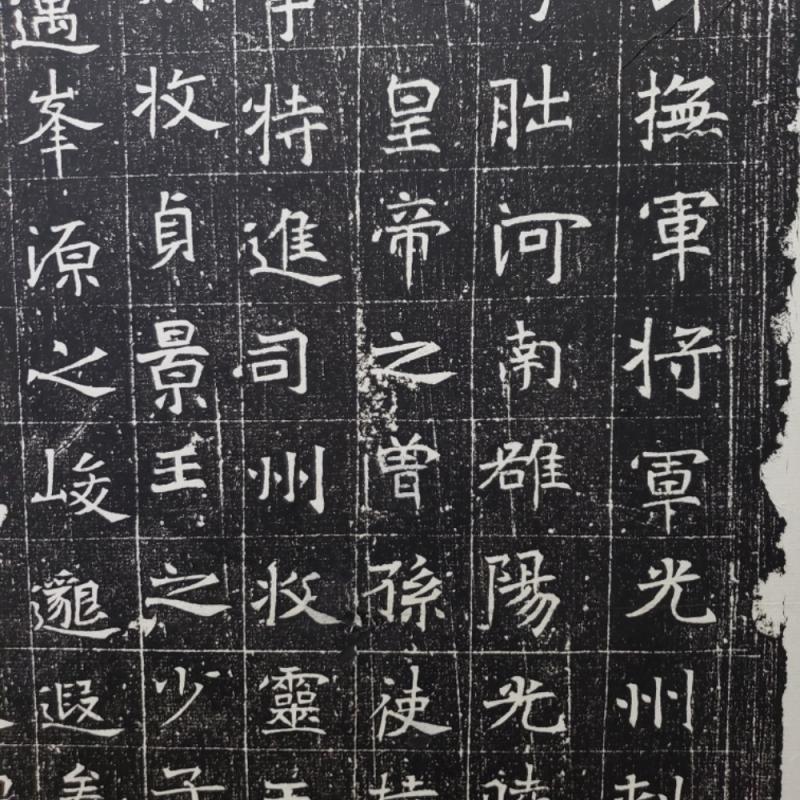 撫軍将軍光州刺
朏河南雒陽光睦
皇帝之曽孫使持
中特進司州牧靈王
牧貞景王之少子
遇峯源之峻邈遐矣